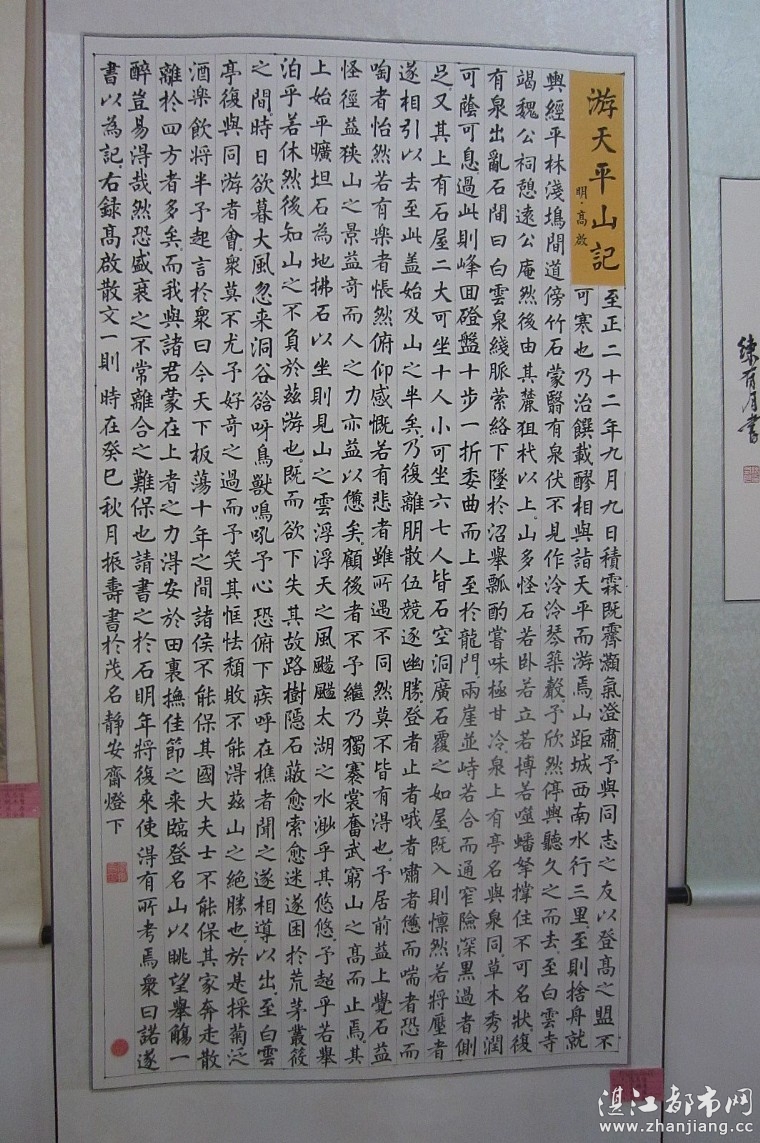 游天平山記
明·高啟
至正二十二年九月九日積霖既霽灝氣澄肅予與同志之友以登高之盟不
可寒也乃治饌載醪相與詣天平而游焉山距城西南水行三里至則捨舟就
輿經平林淺塢間道傍竹石蒙翳有泉伏不見作泠泠琴築聲予欣然停輿聽久之而去至白雲寺
竭魏公祠憩遠公庵然後由其麓狙杙以上山多怪石若卧若立若博若噬蟠拏撑住不可名狀復
有泉出亂石間曰白雲泉綫脈縈絡下墜於沼舉瓢酌嘗味極甘冷泉上有亭名與泉同草木秀潤
可蔭可息過此則峰回磴盤十步一折委曲而上至於龍門兩崖並峙若合而通窄險深黑過者側
足又其上有石屋二大可坐十人小可坐六七人皆石空洞廣石覆之如屋既入則懔然若將壓者
遂相引以去至此盖始及山之半矣乃復離朋散伍競逐幽勝登者止者哦者嘯者憊而喘者恐而
啕者怡然若有樂者悵然俯仰感慨若有悲者雖所遇不同然莫不皆有得也予居前益上覺石益
怪徑益狹山之景益奇而人之力亦益以憊矣顧後者不予繼乃獨褰裳奮武窮山之高而止焉其
上始平曠坦石為地拂石以坐則見山之雲浮浮天之風飂飂太湖之水渺乎其悠悠予超乎若舉
泊乎若休然後知山之不負於兹游也既而欲下失其故路樹隱石蔽愈索愈迷遂困於荒茅叢篠
之間時日欲暮大風忽来洞谷谽呀鳥獸鳴吼予心恐俯下疾呼在樵者聞之遂相導以出至白雲
亭復與同游者會衆莫不尤予好奇之過而予笑其恇怯頽敗不能得兹山之絶勝也於是採菊泛
酒樂飲將半予起言於衆曰今天下板蕩十年之間諸侯不能保其國大夫士不能保其家奔走散
離於四方者多矣而我與諸君蒙在上者之力得安於田裏撫佳節之来臨登名山以眺望舉觴一
醉豈易得哉然恐盛衰之不常離合之難保也請書之於石明年將復來使得有所考焉衆曰諾遂
書以為記右録高啟散文一則 時在癸巳秋月振壽書於茂名靜安齋燈下
練有月書
湛江都市网
www.zhanjiang.cc